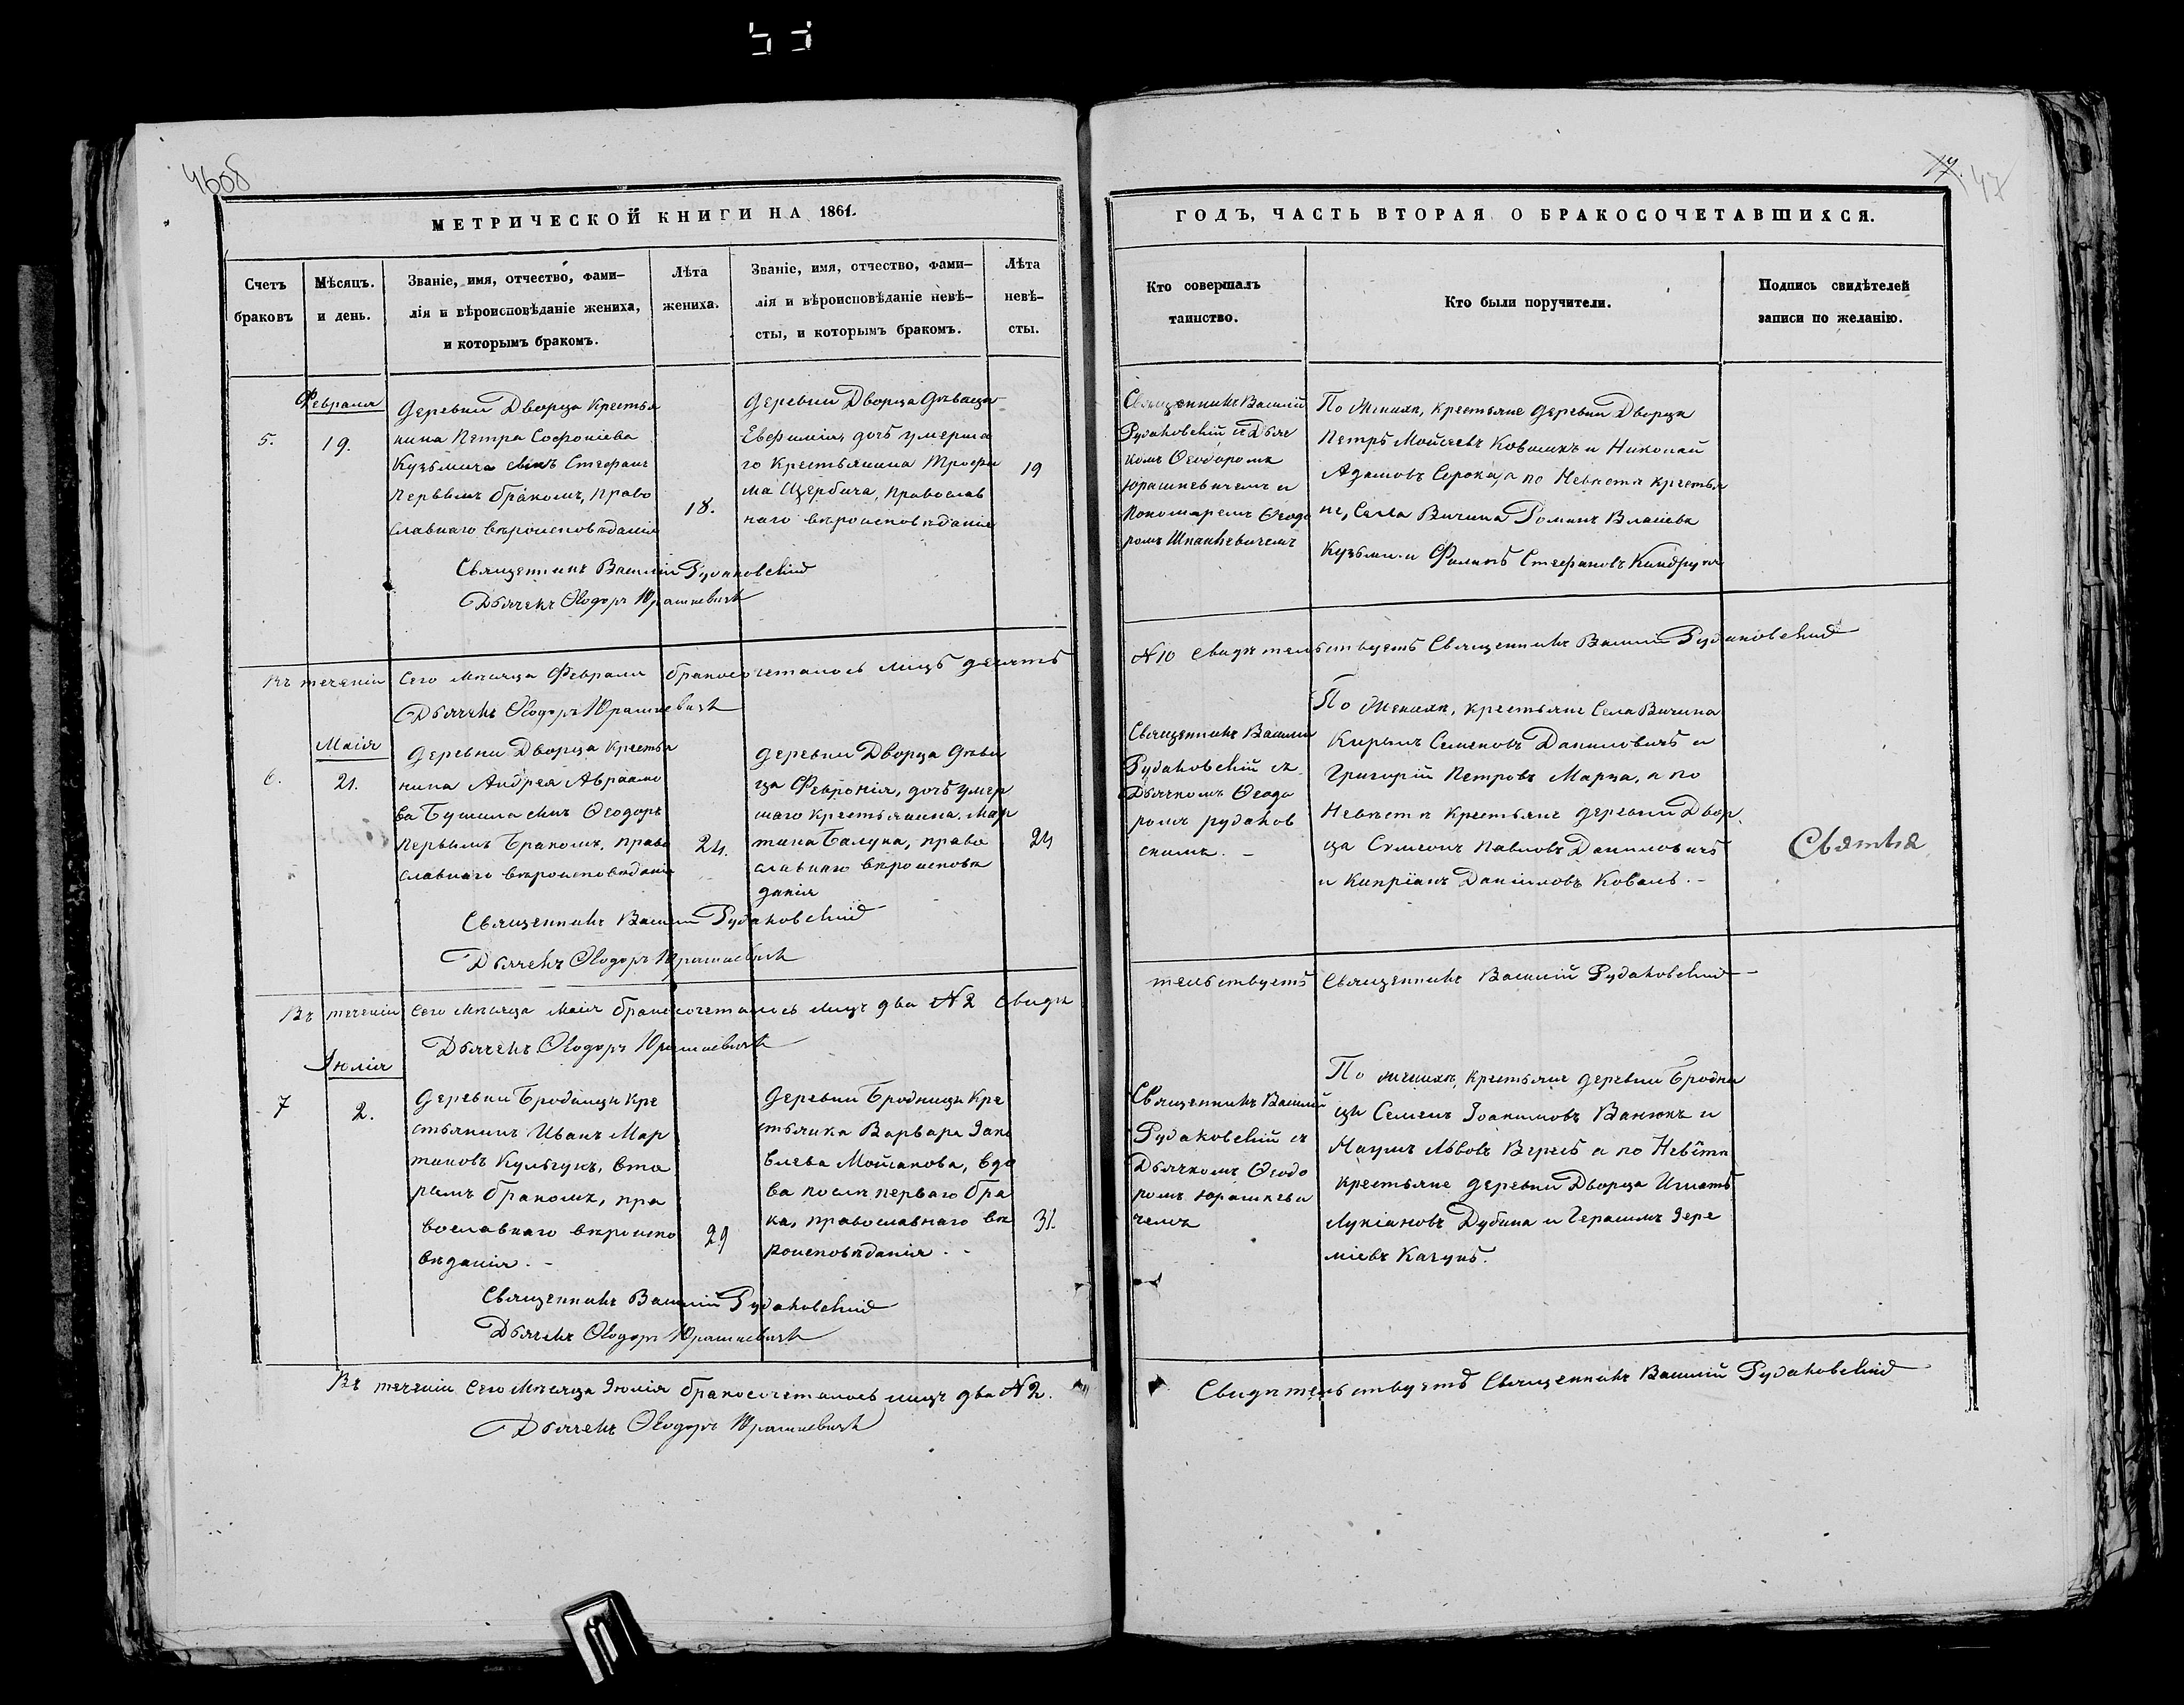 460б
47
МЕТРИЧЕСКОЙ КНИГИ НА 1861.
Счетъ
браковъ
Мѣсяцъ.
и день.
Званіе, имя, отчество, фами-
лія и вѣроисповѣданіе жениха,
и которымъ бракомъ.
Лѣта
жениха.
Званіе, имя, отчество, фами-
лія и вѣроисповѣданіе невѣ-
сты, и которымъ бракомъ.
Лѣта
невѣ-
сты.
Февраля
5.
19.
Деревни Дворца крестья
нина Петра Софоніева
Кузьмича сынъ Стефанъ
первымъ бракомъ, право
славнаго вѣроисповѣданія
18.
Деревни Дворца дѣвица
Евфимія, дочь умерша
го крестьянина Трофи
ма Щербича, православ
наго вѣроисповѣданія
19
Священникъ Василій Рудаковскій
Дьячекъ Ѳеодоръ Юрашкевичъ
Въ теченіи сего мѣсяца Февраля бракосочеталось лицъ десять
Дьячекъ Ѳеодоръ Юрашкевичъ
Маія
6.
21.
Деревни Дворца крестья
нина Андрея Авраамо
ва Бушила сынъ Ѳеодоръ
первымъ бракомъ, право
славнаго вѣроисповѣданія
24.
Деревни Дворца дѣви
ца Февронія, дочь умер
шаго крестьянина Мар
тина Балука, право
славнаго вѣроисповѣ
данія
24
Священникъ Василій Рудаковскій
Дьячекъ Ѳеодоръ Юрашкевичъ
Въ теченіи сего мѣсяца Маія бракосочеталось лицъ два N 2 Свидѣ
Дьячекъ Ѳеодоръ Юрашкевичъ
Іюлія
7
2.
Деревни Бродницы кре
стьянинъ Иванъ Мар
тиновъ Кульгукъ, вто
рымъ бракомъ, пра
вославнаго вѣроиспо
вѣданія. -
29
Деревни Бродницы кре
стьянка Варвара Іако
влева Мошакова, вдо
ва послѣ перваго бра
ка, православнаго вѣ
роисповѣданія. -
31.
Священникъ Василій Рудаковскій
Дьячекъ Ѳеодоръ Юрашкевичъ
Въ теченіи сего мѣсяца Іюлія бракосочеталось лицъ два N 2.
Дьячекъ Ѳеодоръ Юрашкевичъ
ГОДЪ, ЧАСТЬ ВТОРАЯ О БРАКОСОЧЕТАВШИХСЯ.
Кто совершалъ
таинство.
Кто были поручители.
Подпись свидѣтелей
записи по желанію.
Священникъ Василій
Рудаковскій съ Дьяч
комъ Ѳеодоромъ
Юрашкевичемъ и
Пономаремъ Ѳеодо
ромъ
По Женихѣ, крестьяне деревни Дворца
Петръ Мойсеевъ Ковшикъ и Николай
Адамовъ Сорока, а по Невѣстѣ крестья
не, села Вичина Романъ Власіевъ
Кузьмич и Филипъ Стефановъ
N 10 Свидѣтельствуетъ Священникъ Василій Рудаковскій
Священникъ Василій
Рудаковскій съ
Дьячкомъ Ѳеодо
ромъ Рудаков
скимъ. -
По Женихѣ, крестьяне села Вичина
Кирилъ Семеновъ Даниловичъ и
Григорій Петровъ Марца, а по
Невѣстѣ крестьяне деревни Двор
ца Симеонъ Павловъ Даниловичъ
и Кипріанъ Даніиловъ Коваль. -
тельствуетъ Священникъ Василій Рудаковскій -
Священникъ Василій
Рудаковскій съ
Дьячкомъ Ѳеодо
ромъ Юрашкеви
чемъ
По женихѣ, крестьяне деревни Бродни
цы Семенъ Іоакимовъ Ванюкъ и
Наумъ Львовъ Вересъ а по Невѣстѣ
крестьяне деревни Дворца Игнатъ
Лукіановъ Дубина и Герасимъ Іере
міевъ Качукъ.
Свидѣтельствуетъ Священникъ Василій Рудаковскій